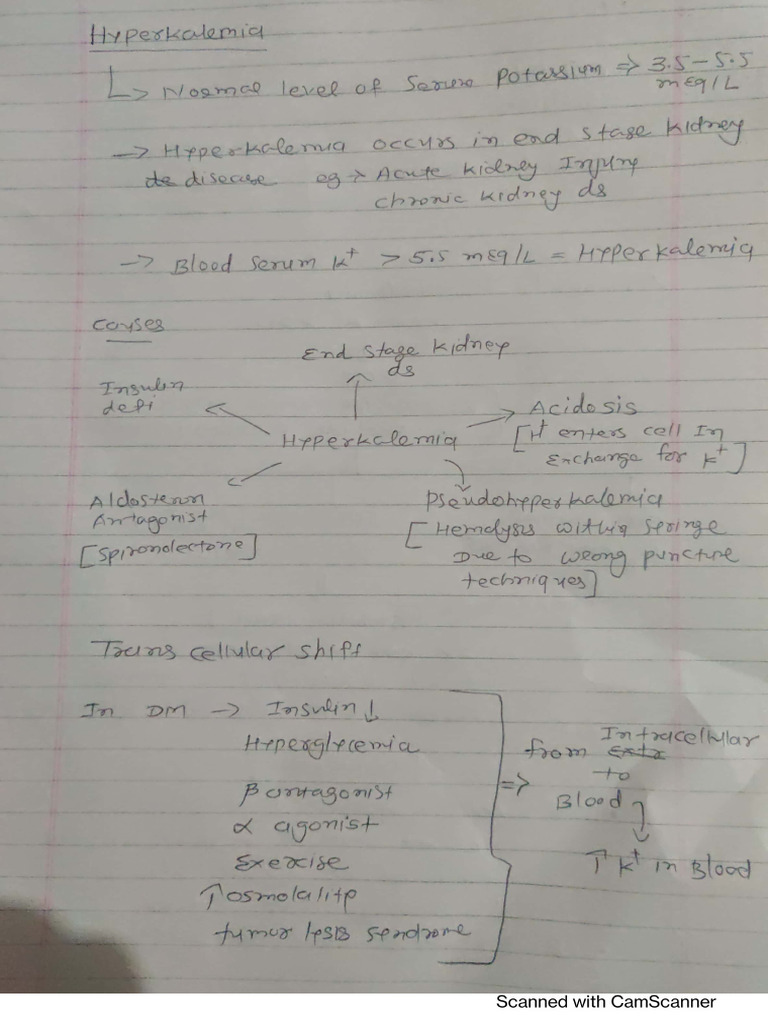 Hyperkalemia
↳ Normal level of Serum Potassium ⇒ 3.5 – 5.5 mEq/L
→ Hyperkalemia occurs in end stage kidney
disease eg → Acute kidney Injury
chronic kidney ds
→ Blood Serum K⁺ > 5.5 mEq/L = Hyperkalemia
Causes
End stage kidney
ds
Insulin
defi
Acidosis
[H⁺ enters cell In
Exchange for K⁺]
Hyperkalemia
Aldosteron
Antagonist
[Spironolectone]
Pseudohyperkalemia
[Hemolysis within Syringe
Due to wrong puncture
techniques]
Trans cellular shift
In DM → Insulin ↓
Hyperglycemia
β antagonist
α agonist
Exercise
↑ osmolality
tumor lysis syndrome
⇒ from Intracellular
to
Blood
↑ K⁺ in Blood
Scanned with CamScanner